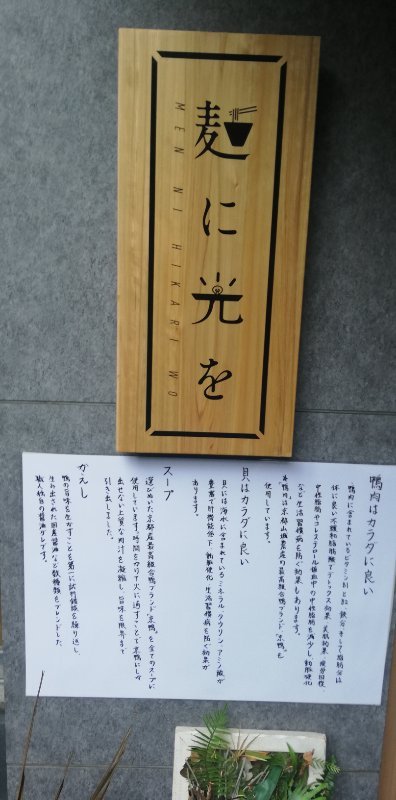 麺に光を
MEN NI HIKARI WO
鴨肉はカラダに良い
鴨肉に含まれているビタミンBとB2、鉄分そして脂肪分は
体に良い不飽和脂肪酸でデトックス効果、美肌効果、疲労回復、
中性脂肪やコレステロール値血中の中性脂肪を減少し、動脈硬化
など生活習慣病を防ぐ効果もあります。
使用しています。
貝はカラダに良い
貝には海水に含まれているミネラル、タウリン、アミノ酸が
豊富で肝機能低下、動脈硬化、生活習慣病を防ぐ効果が
あります。
スープ
選びぬいた京都産最高級合鴨ブランド"京鴨"を全てのスープに
使用しています。時間をかけて火に通すことで京鴨にしか
出せない上質な肉汁を凝縮し、旨味を限界まで
引き出しました。
かえし
鴨の旨味を生かすことを第一に試行錯誤を繰り返し、
生み出された国産醤油、と数種類をブレンドした、
職人独自の醤油ダレです。